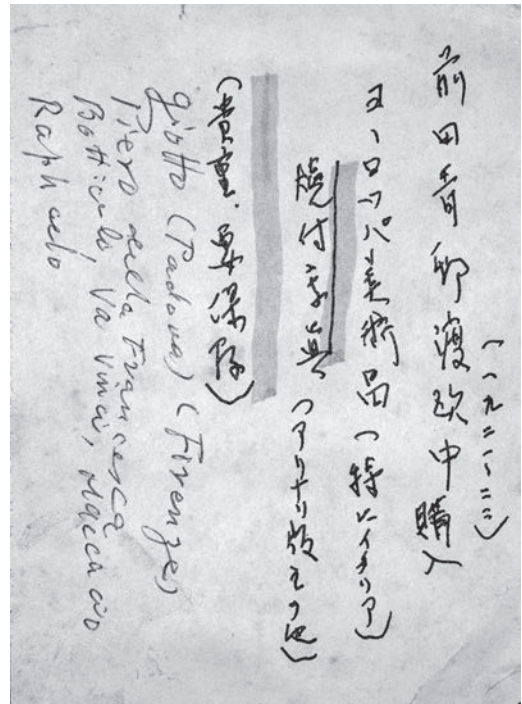 前田青邨渡欧中購入
(一九二二、二三)
ヨーロッパ美術品(特にイタリア)
焼付写真(アリナリ版その他)
(貴重・要保存)
Giotto (Padova) (Firenze)
Piero della Francesca
Botticeli, Va Vinci,
Raphaelo